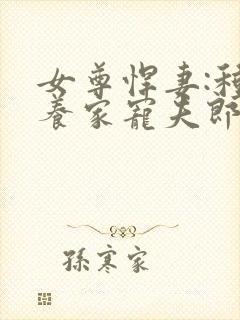 女尊悍妻:種
養家寵夫郎
孫寒家